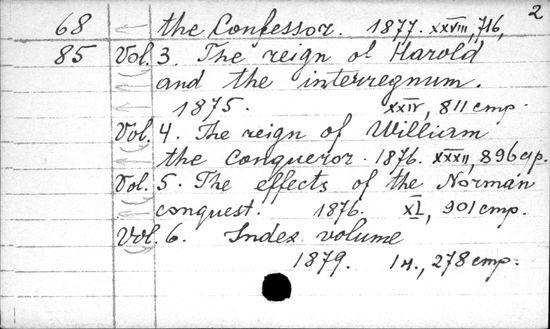 2
68 the Confessor. 1877. XXVIII, 716,
85 Vol. 3. The reign of Harold
and the interregnum.
1875. XXIV, 811 стр.
Vol. 4. The reign of William
the Conqueror. 1876. XXXII, 896 стр.
Vol. 5. The effects of the Norman
conquest. 1876. XL, 901 стр.
Vol. 6. Index volume
1879. 278 стр.